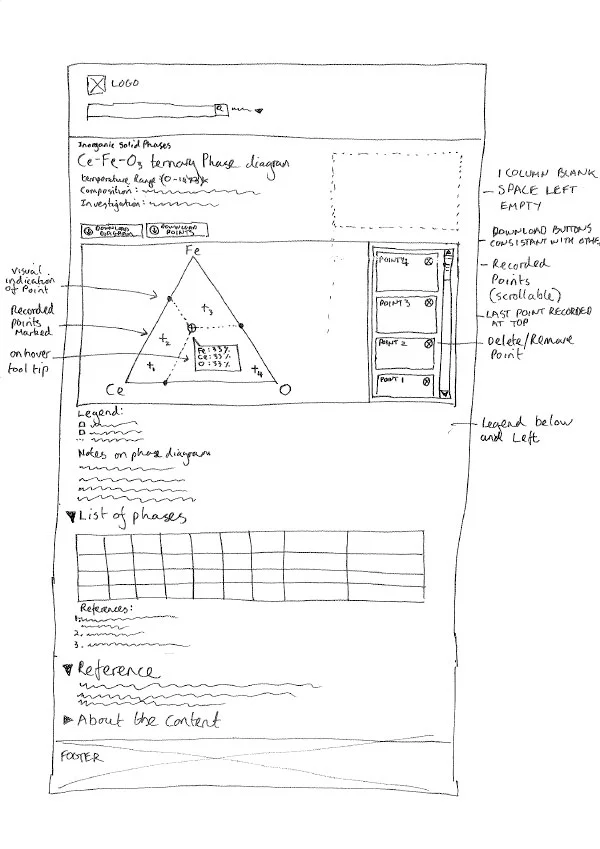 LOGO
Inorganic Solid Phases
Ce-Fe-O3 ternary Phase diagram
temperature Range:
Composition:
Investigation:
DOWNLOAD DIAGRAM
DOWNLOAD POINTS
1 COLUMN BLANK
SPACE LEFT
EMPTY
DOWNLOAD BUTTONS
CONSISTANT WITH OTHE
Recorded
Points
(scrollable)
LAST POINT RECORDED
AT TOP
Delete/Remove
Point
Visual
indication
of Point
Recorded
points
Marked
on hover
tool tip
Fe
+3
+2
+1
+4
Fe: 33%
Ce: 33%
O: 33%
Ce
O
POINT 4
POINT 3
POINT 2
POINT 1
Legend:
Legend below
and Left
Notes on phase diagram
List of phases
References:
1.
2.
3.
Reference
About the Content
FOOTER